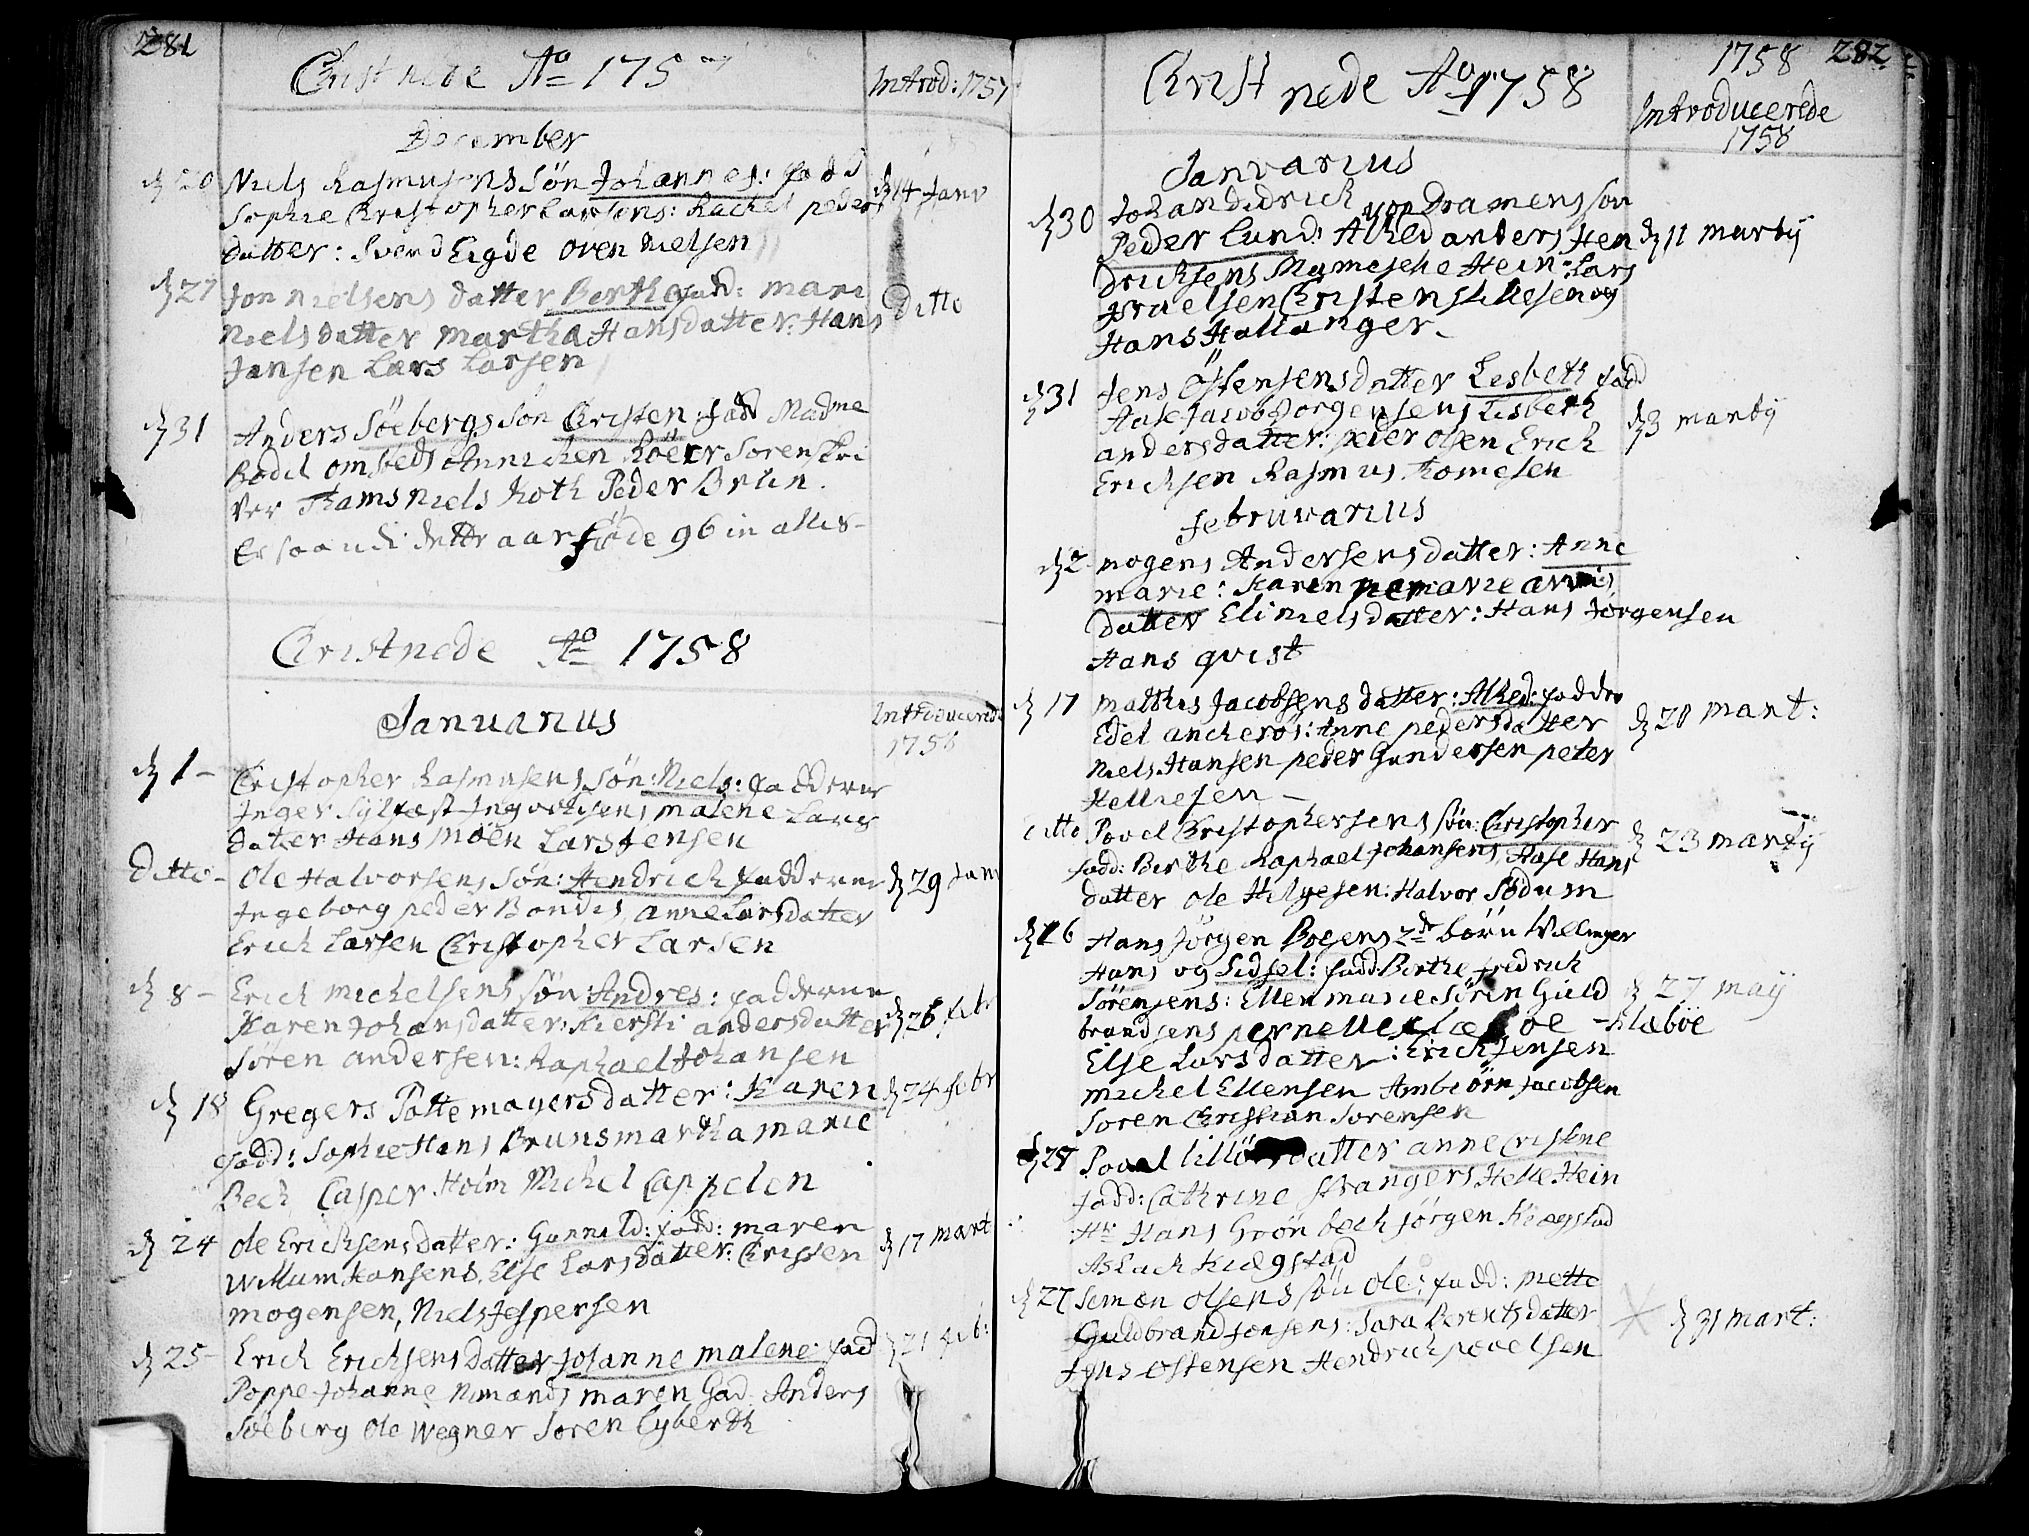 281
Christnede Ao 1757
Introd: 1757
December
d 20 Niels Rasmusens søn Johannes: fadd
d 14 Janv
Sophie Christopher Larsens: Rachel peders
datter: Svend Eigde Oven Nielsen
d 27 Jon Nielsens datter Berthe fadd: mari
Ditto
Nielsdatter Martha Hansdatter: Hans
Jansen Lars Larsen
d 31 Anders Söebergs søn Christen fadd Madme
Rodil ombeds Annichen Röer Sorenskri
ver Thams Niels Roth Peder Brun.
Er saa udi dette aar föde 96 in alles
Christnede Ao 1758
Januarius
Introducerede
1758
d 1 - Christopher Rasmusens søn: Niels: fadderne
Inger Sylfæst Ingvoldsens malene Lars
datter Hans Möen Lars Jensen
Ditto - Ole Halvorsens søn: Hendrich fadderne
d 29 Janv
Ingeborg peder Bondes, anne Larsdatter
Erich Larsen Christopher Larsen
d 8 - Erich Michelsens søn: Andres: fadderne
d 26 febr
Karen Johansdatter: Kiersti andersdatter
Sören andersen: Raphael Johansen
d 18 Gregers Pottemagers datter: Karen
d 24 febr
fadd: Sophie Hans Bruns martha marie
Bech Casper Holm Michel Cappelen
d 24 Ole Erichsens datter: Gunnild: fadd: maren
d 17 mart
Willum Hansens, Else Larsdatter: Christen
mogensen, Niels Jespersen
d 25 - Erich Erichsens datter Johanne malene fad
d 21 feb:
Poppe Johanne Numands maren Gad Anders
Söeberg Ole Wegner Soren Eyberth
1758 282
Christnede Ao 1758
Introducerede
1758
Januarius
d 30 Johan didrich von Dramens søn
Peder Lund: Alhed anders Hen
d 11 marty
drichsens Hein: Lars
Israelsen Christen og
Hans Hallanger
d 31 Jens Östensens datter Lesbeth fadd
Aase Jacob Jorgensens Lisbeth
d 3 marty
andersdatter: peder olsen Erich
Erichsen Rasmus Thomesen
februvarius
d 2 mogens Andersens datter: Anne
marie: Karen marie
datter Eli nielsdatter: Hans Jørgensen
Hans qvist
d 17 mathis Jacobsens datter: Alhed: faddre
d 20 mart:
Edel ancherös: Anne pedersdatter
Niels Hansen peder Gundersen peter
Hellresen
ditto Povel Christophersens søn: Christopher
d 23 marty
fadd: Berthe Raphael Johansens, Aase Hans
datter ole Helgesen: Halvor Södum
d 26 Hans Jörgen Bogens 2de börn tvillinger
Hans og Sidsel: fadd: Berthe fredrich
d 27 may
Sörensens: Ellen marie Sören Guld
brandsens pernelle - Klæböe
Else Larsdatter: Erich Jensen
michel Ellensen Ambiörn Jacobsen
Soren Christian Sorensen
d 27 Povel datter anne Cristine
fadd: Cathrine Svangers Helle Hein
Hr Hans Grönbech Jörgen Kiægstad
Aslach Kiægstad
d 27 Semen Olsens søn Ole: fadd: Mette
Guldbrand Jonsens: Sara Berentsdatter
d 31 mart:
Jens Ostensen Hendrich povelsen